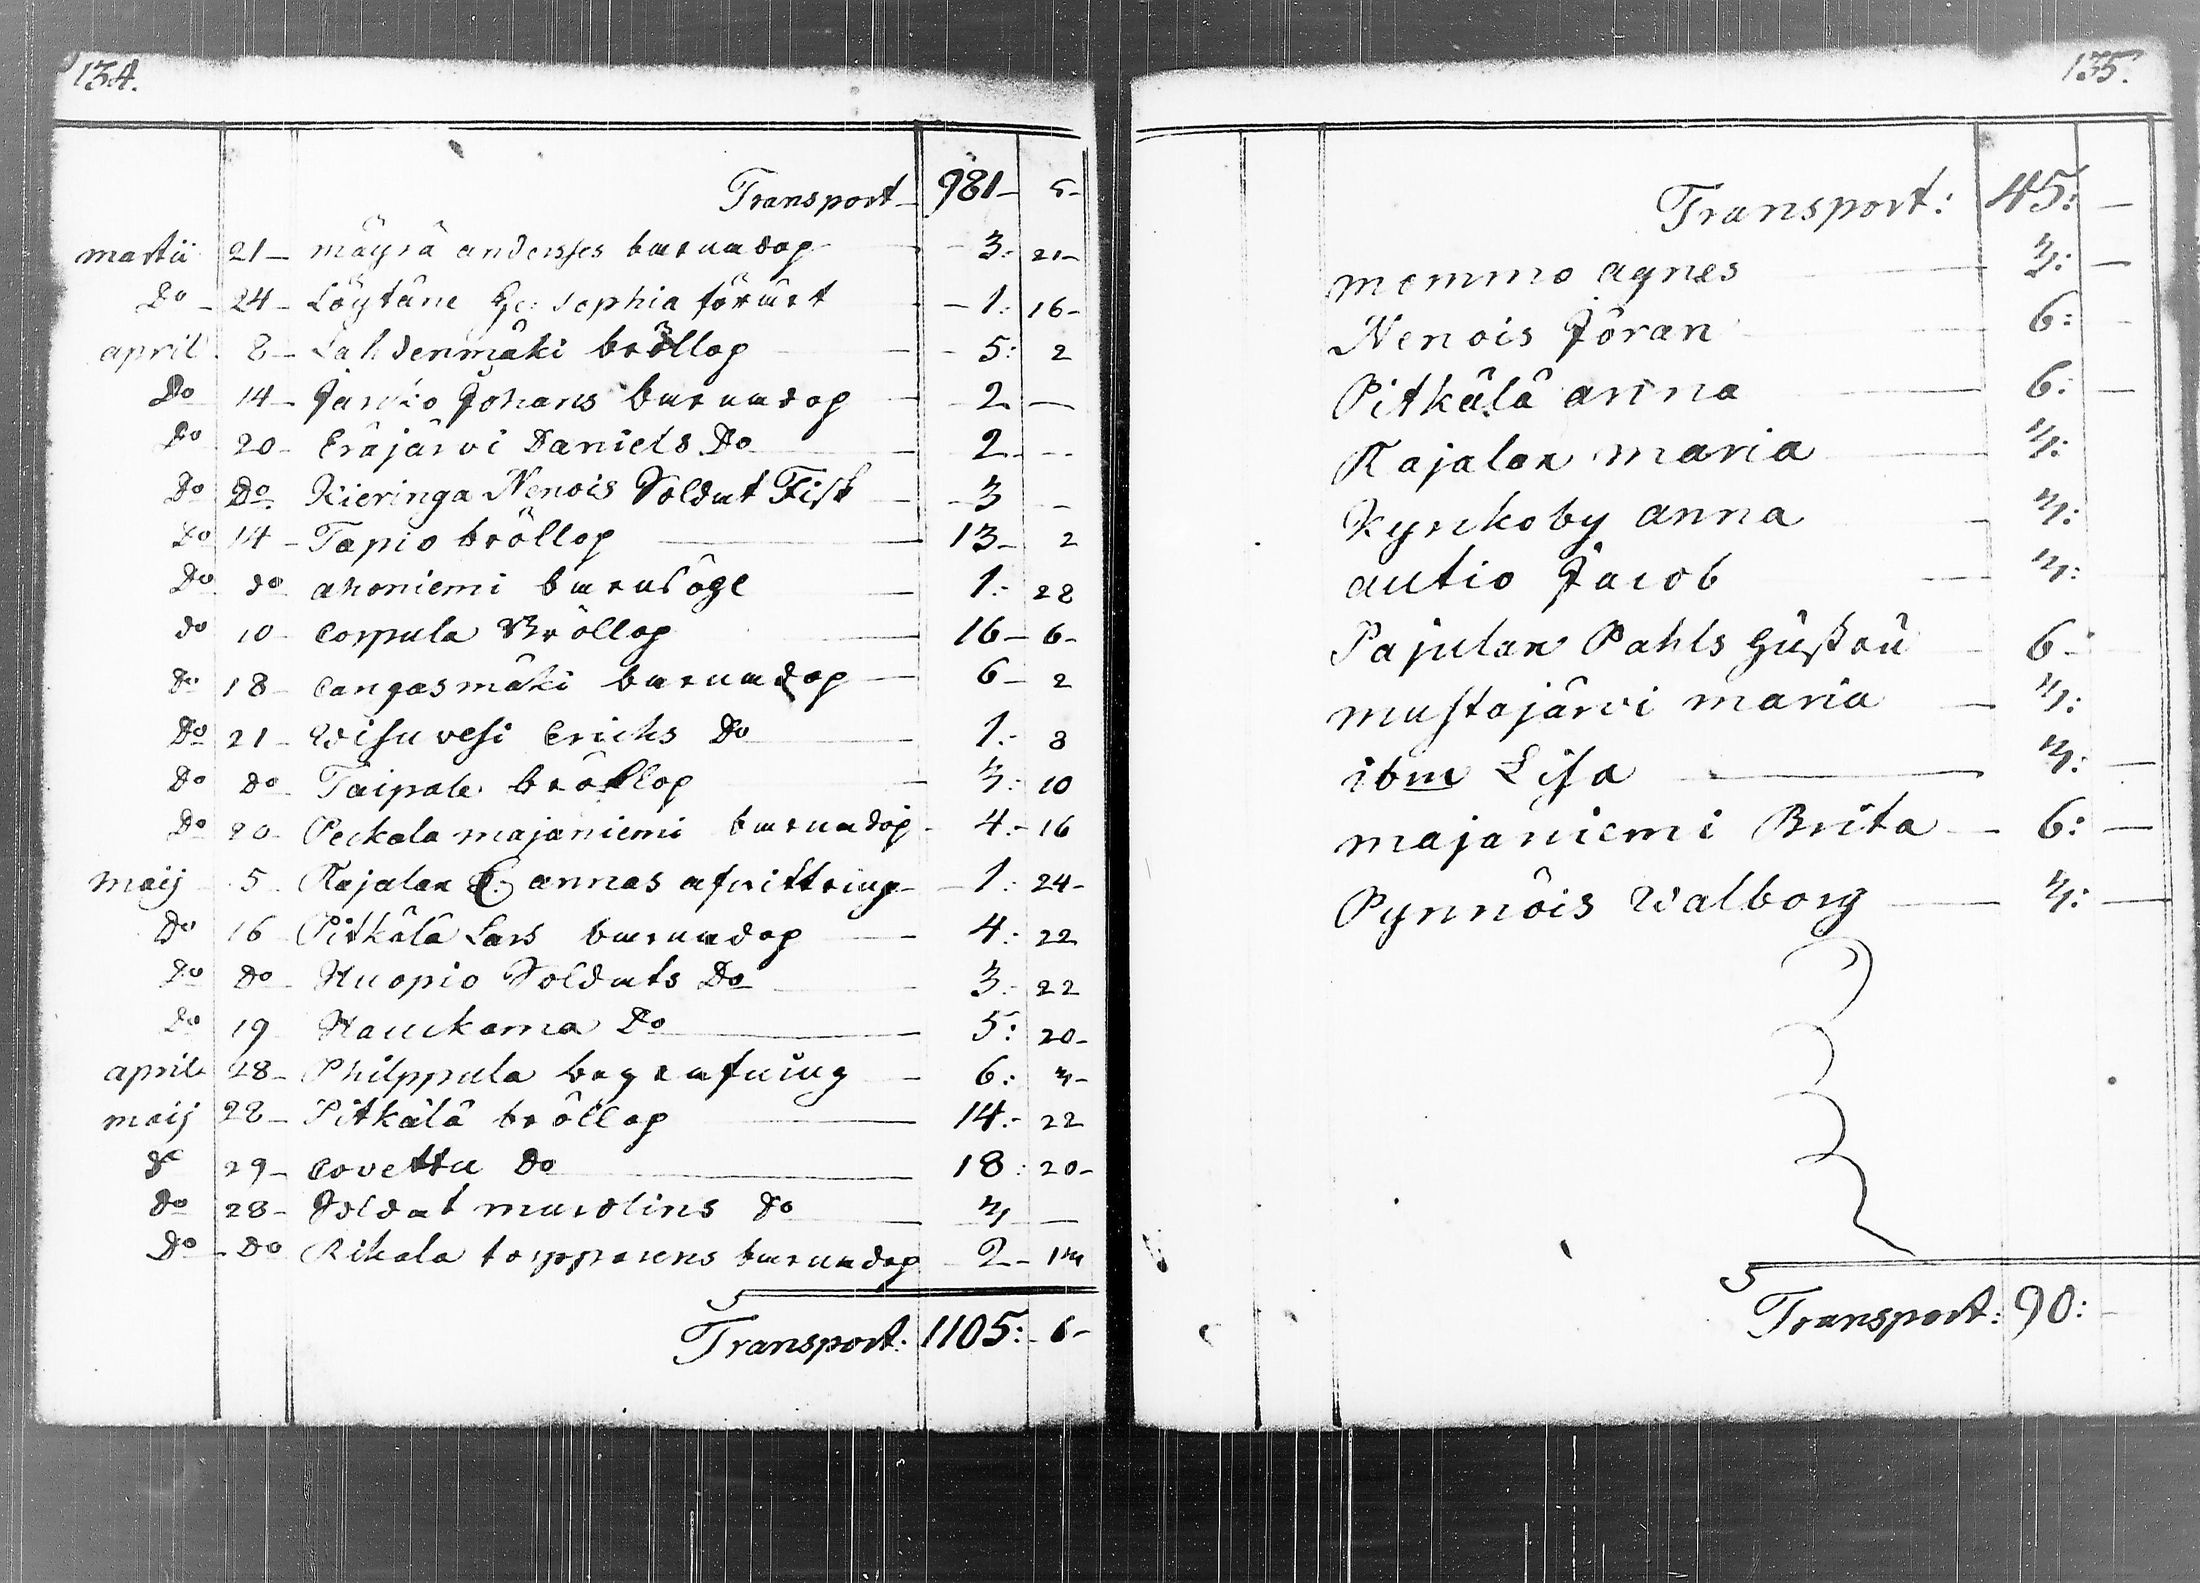 134.
Transport 981 5
martii 21 mäyrä andersses barnadop 3: 21
Do 24 Löytäne sophia 1: 16
april 8 Lahdenmäki bröllop 5: 2
Do 14 Jancko Johans barnadop 2 —
Do 20 Eräjärvi Daniels Do 2 —
Do Do Kieringa Nenois Soldat Fisk 3 —
Do 14 Tapio bröllop 13 2
Do do ahoniemi 1: 28
do 10 Corpula Bröllop 16 6
Do 18 Cangasmäki barnadop 6 2
Do 21 Wisuvesi Erichs Do 1: 8
Do Do Taipale bröllop 3: 10
Do 20 Peckala majaniemi barnadop 4: 16
maij 5 Rajalan annas afvittring 1: 24
Do 16 Pitkälä Lars barnadop 4: 22
Do Do Huopio Soldats Do 3: 22
Do 19 Hauckama Do 5: 20
april 28 Philppula begrafning 6: 3
maij 28 Pitkälä bröllop 14: 22
do 29 Covettu Do 18: 20
Do 28 Soldat murolins Do 3 —
Do Do Rikala torpparens barnadop 2 13
Transport: 1105: 6
135.
Transport: 45: —
memmo agnes 3: —
Nenois Jöran 6: —
Pitkälä anna 6: —
Rajalan maria 3:
Kyrckoby anna 3:
autio Jacob 3:
Pajulan Pahls Gustau 6
mustajärvi maria 3:
ibm Lisa 3: —
majaniemi Brita 6: —
Pynnöis Walborg 3: —
Transport: 90: —